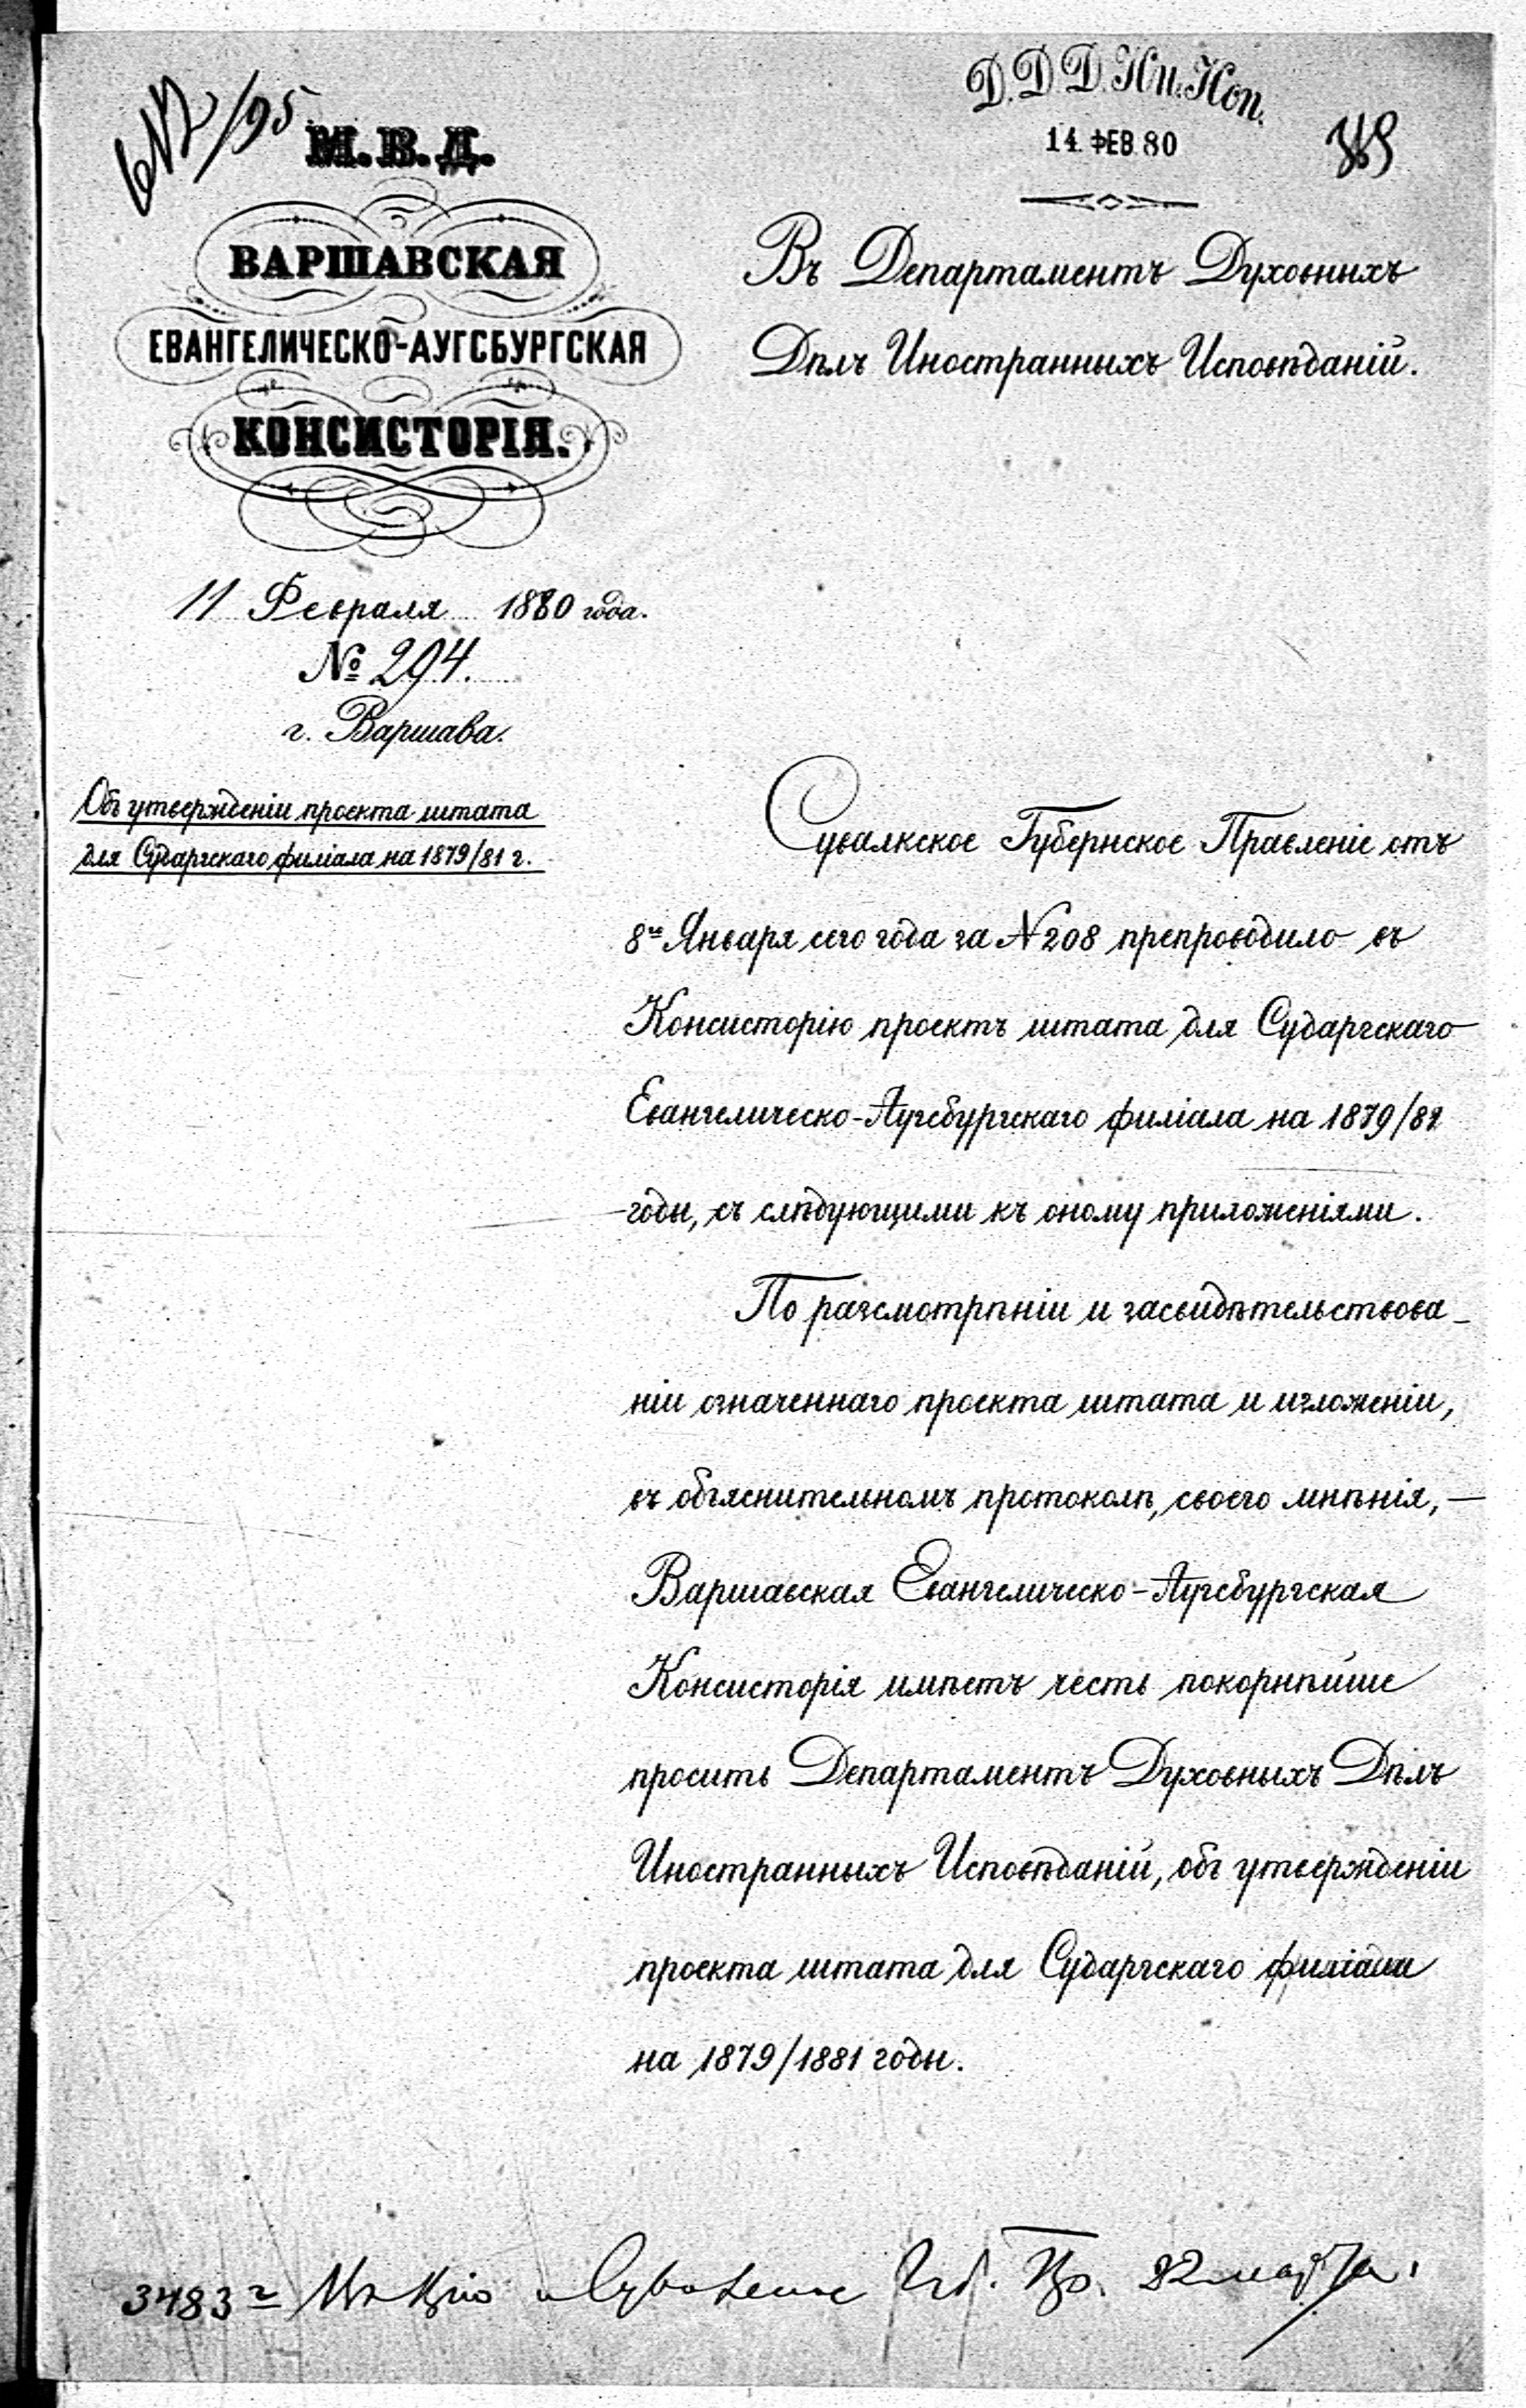 Д.Д.Д.Ин.Исп.
14 ФЕВ. 80
М.В.Д.
ВАРШАВСКАЯ
ЕВАНГЕЛИЧЕСКО-АУГСБУРГСКАЯ
КОНСИСТОРІЯ.
11 Февраля 1880 года.
№ 294.
г. Варшава.
Объ утвержденіи проекта штата
для Сударгскаго филіала на 1879/81 г.
Въ Департаментъ Духовныхъ
Дѣлъ Иностранныхъ Исповѣданій.
Сувалкское Губернское Правленіе отъ
8го Января сего года за № 208 препроводило въ
Консисторію проектъ штата для Сударгскаго
Евангелическо-Аугсбургскаго филіала на 1879/81
годы, съ слѣдующими къ оному приложеніями.
По разсмотрѣніи и засвидѣтельствова-
ніи означеннаго проекта штата и изложеніи,
въ объяснительномъ протоколѣ, своего мнѣнія, —
Варшавская Евангелическо-Аугсбургская
Консисторія имѣетъ честь покорнѣйше
просить Департаментъ Духовныхъ Дѣлъ
Иностранныхъ Исповѣданій, объ утвержденіи
проекта штата для Сударгскаго филіала
на 1879/1881 годы.
3483 22 марта